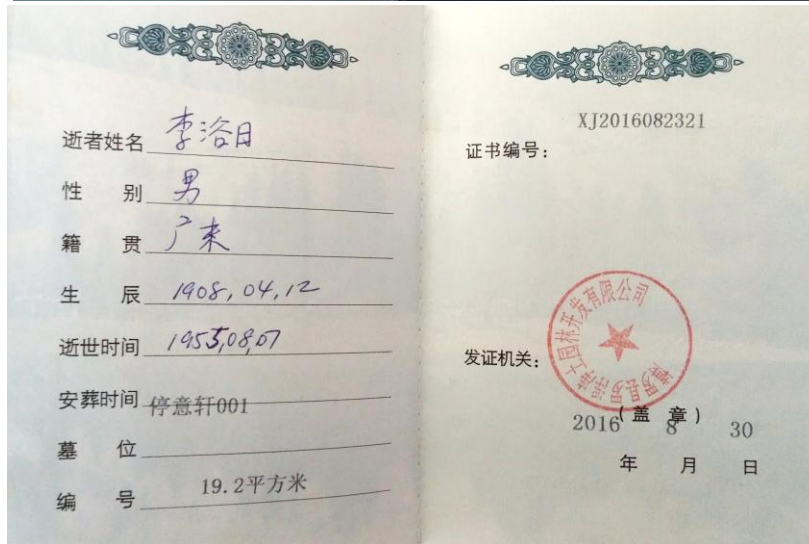 逝者姓名 李浴日
性 别 男
籍 贯 广东
生 辰 1908,04,12
逝世时间 1955,08,07
安葬时间 停意轩001
墓 位
编 号 19.2平方米
XJ2016082321
证书编号:
发证机关:
园林开发有限公司
(盖 章)
2016 8 30
年 月 日